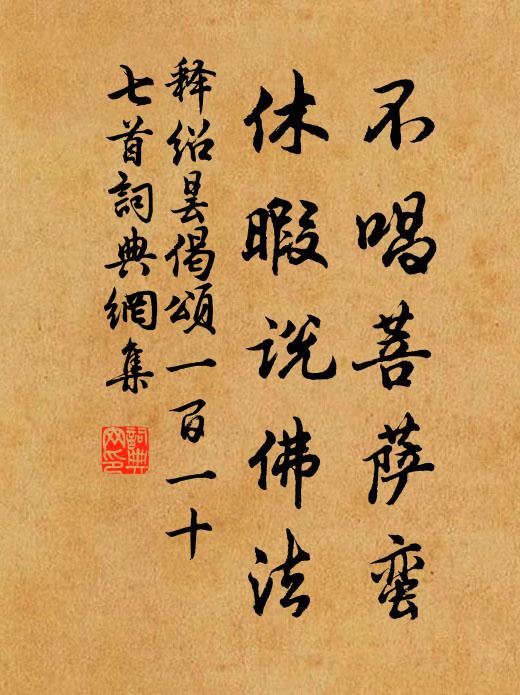 不唱菩萨蛮
休暇说佛法
释绍昙偈颂一百一十
七首詞典網集
詞典
网印